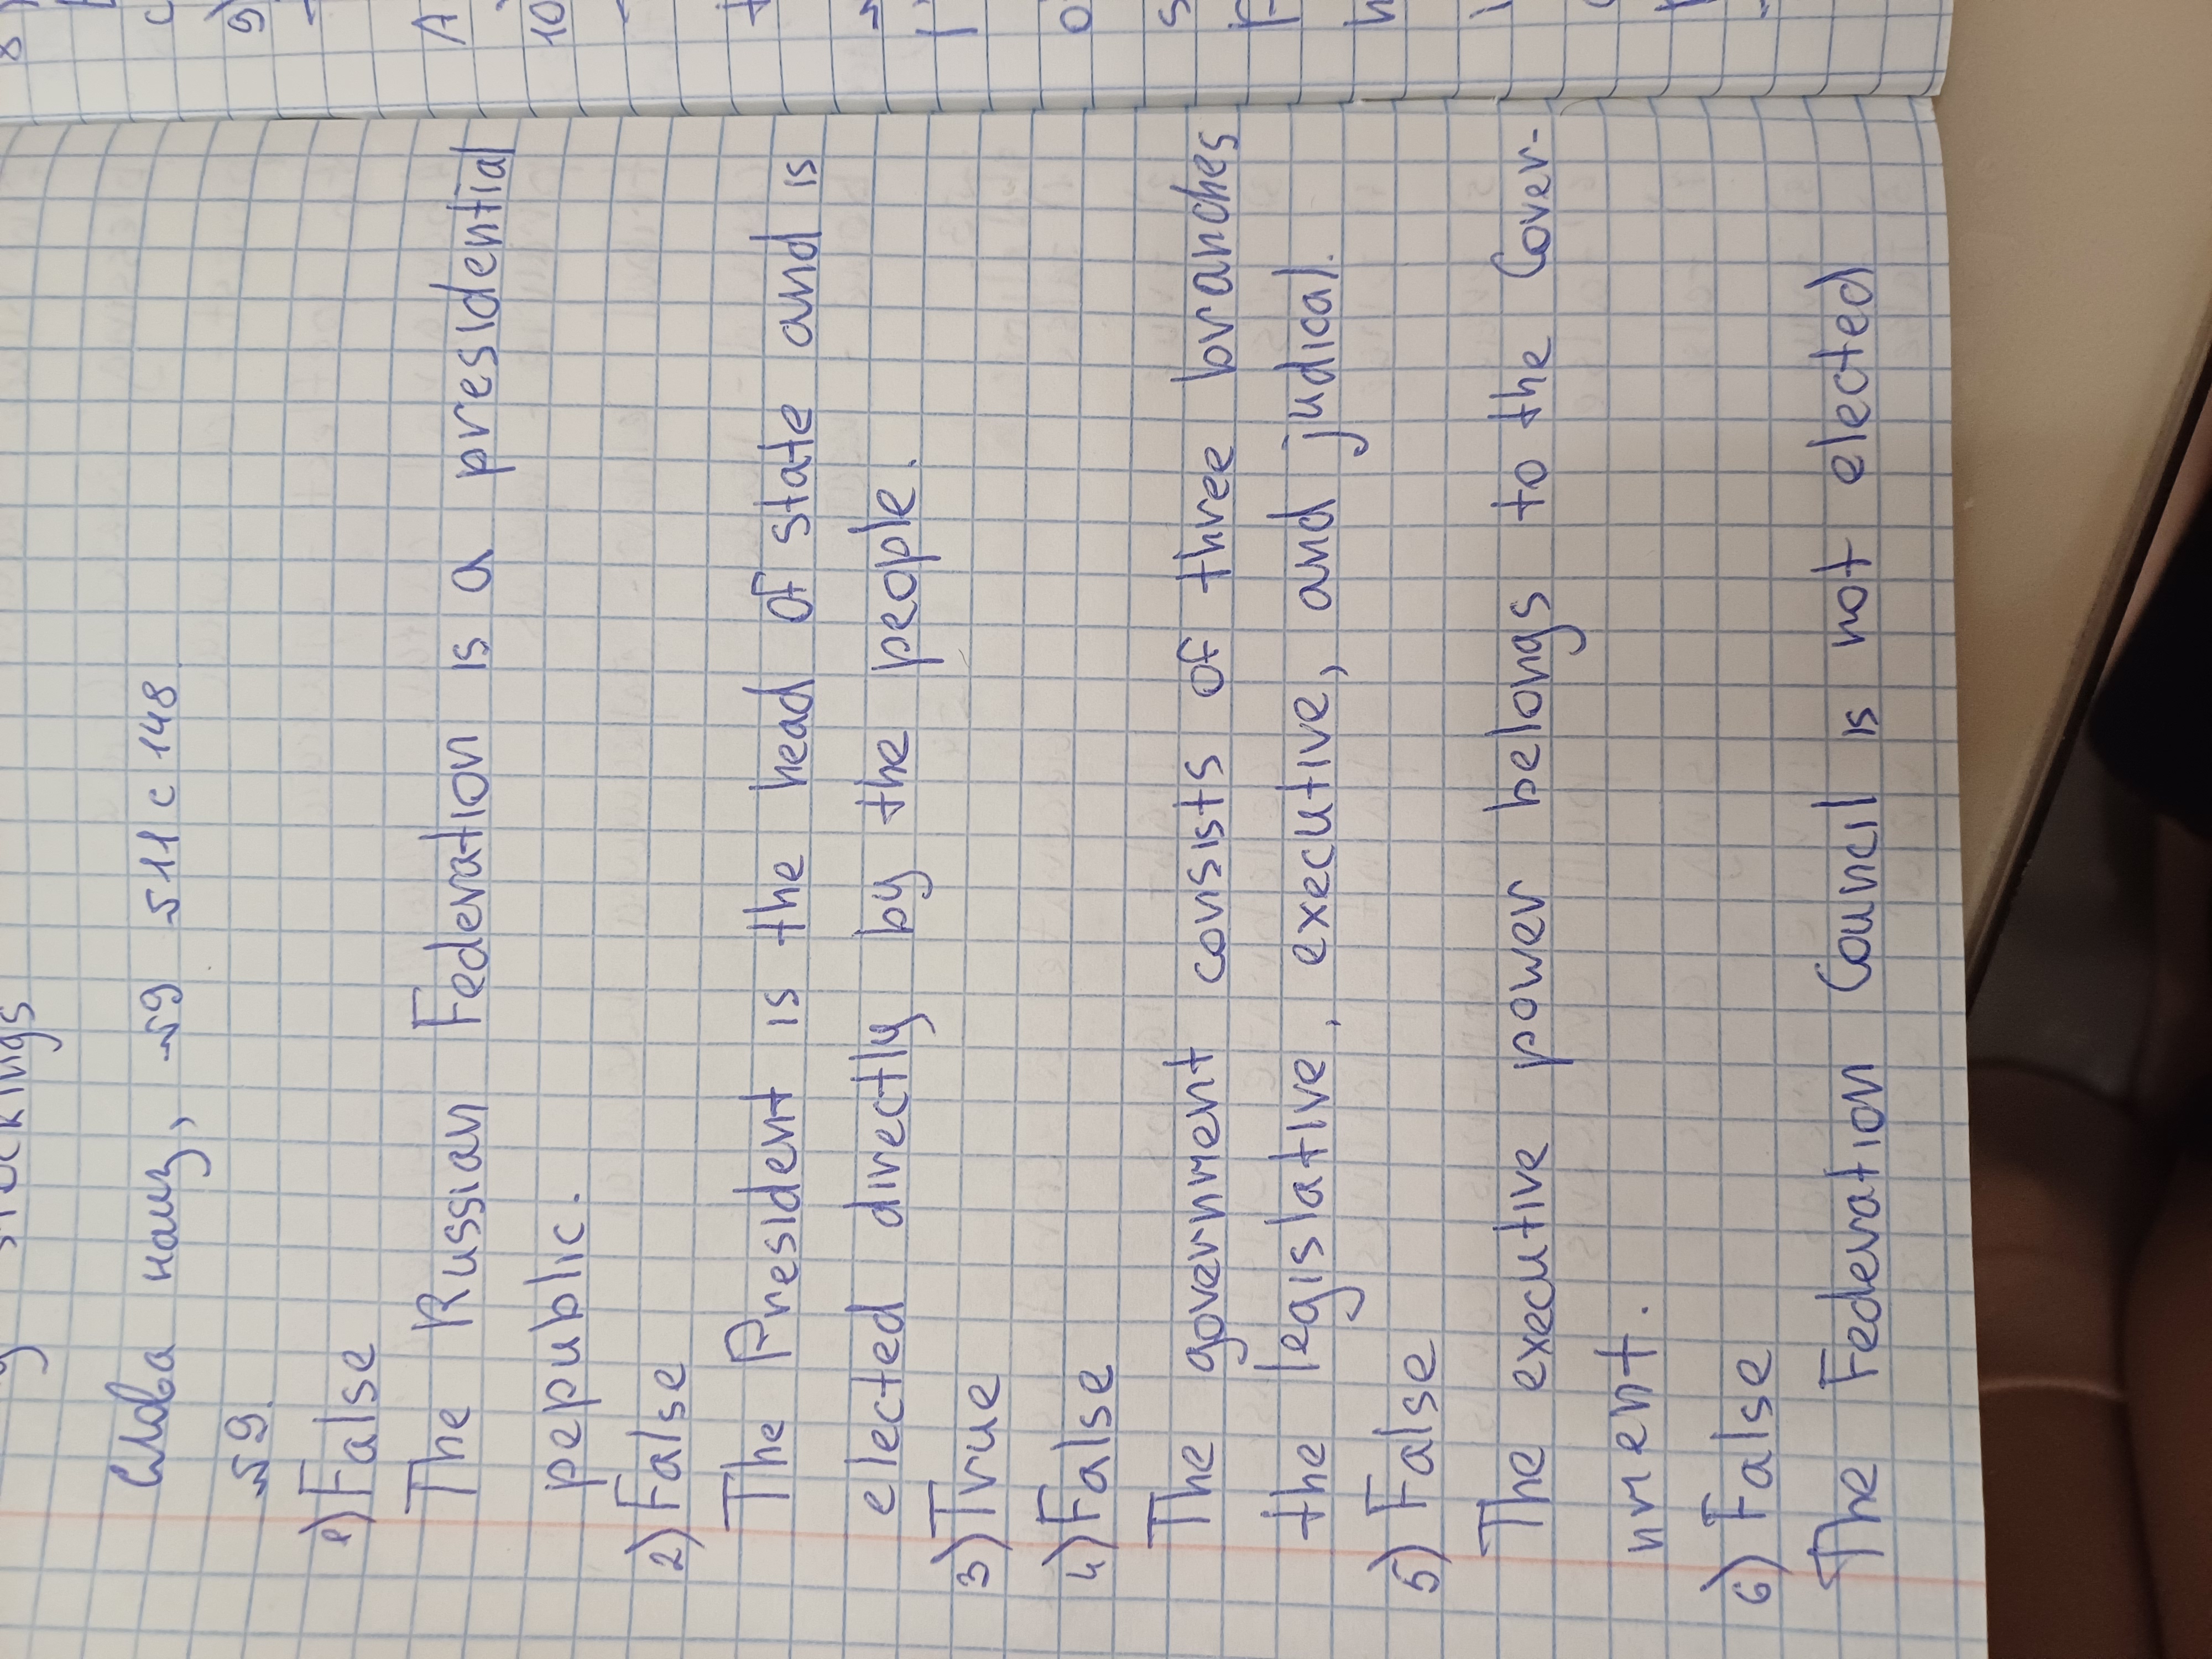 stockings
Слова наиз, №9 №11 с 148
№9.
1) False
The Russian Federation is a presidential
pepublic.
2) False
The President is the head of state and is
elected directly by the people.
3) True
4) False
The government consists of three branches
the legislative, executive, and judical.
5) False
The executive power belongs to the Cover-
nment.
6) False
The Federation Council is not elected
8)
9)
10